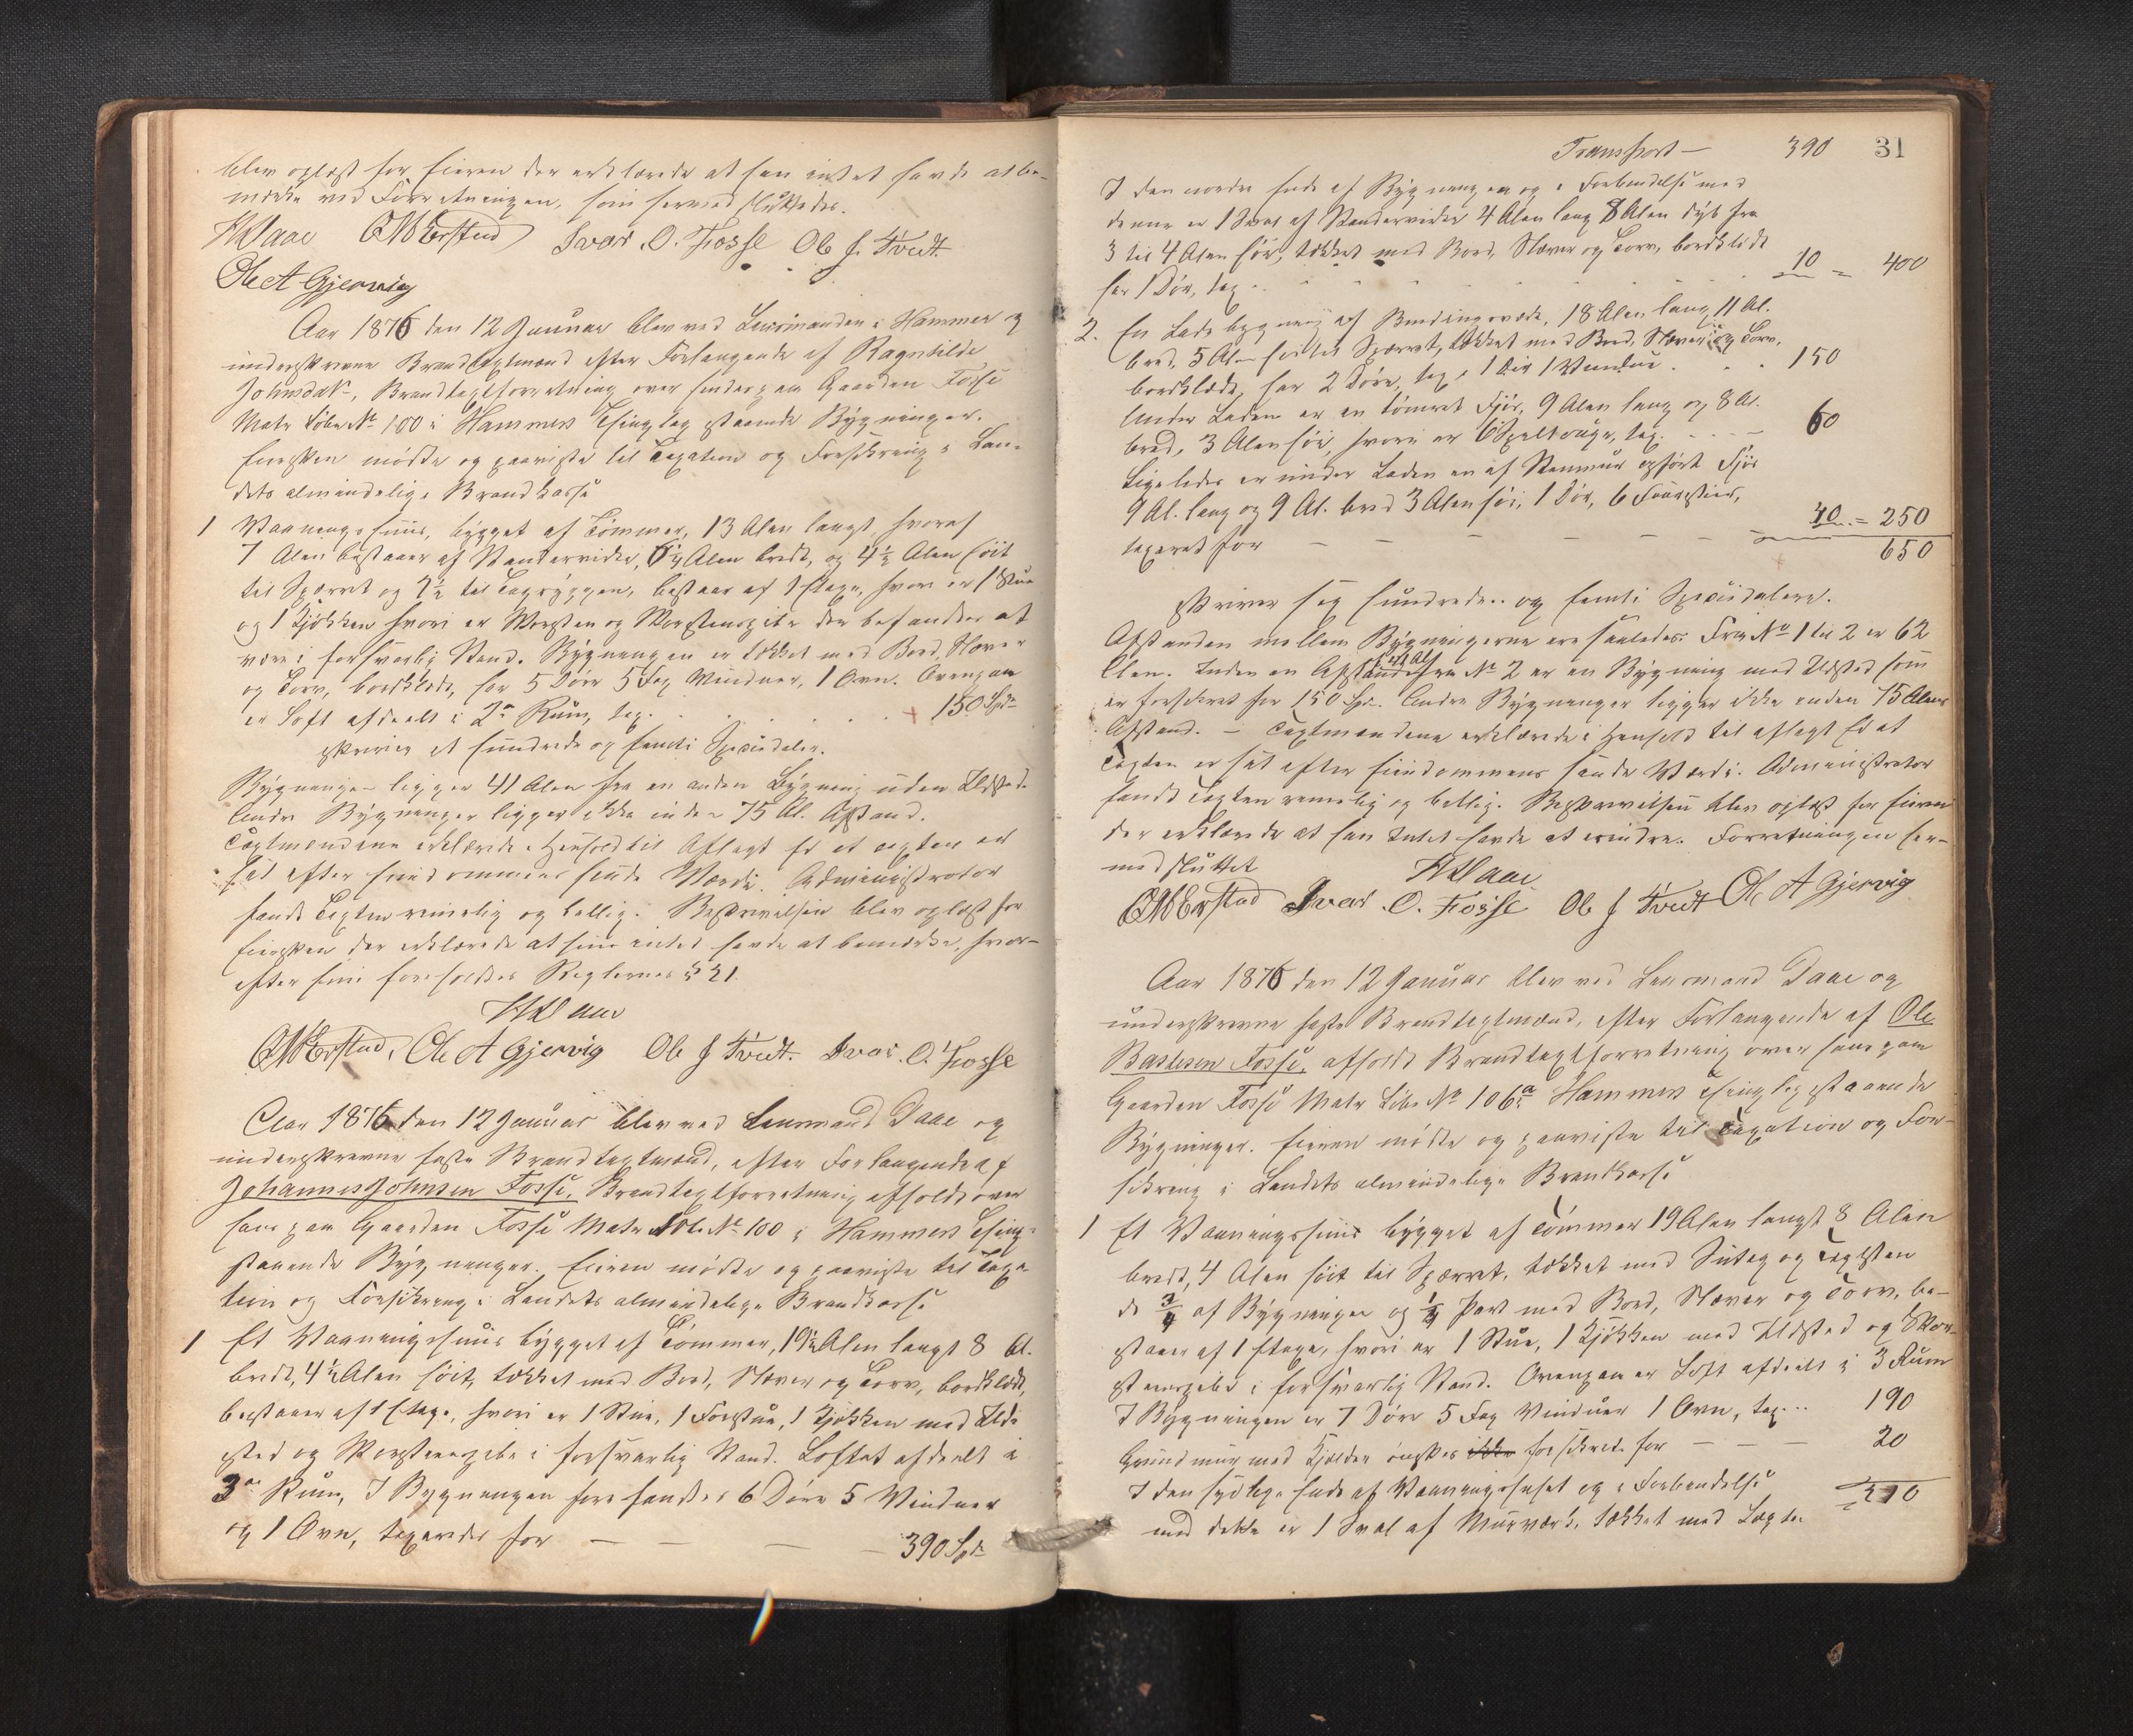 blev oplæst for Eieren der erklærede at han intet havde at be-
mærke ved Forretningen, som hermed sluttedes.
HDaae OMErstad Ivar O. Fosse Ole J. Tvedt
Ole A Gjervig
Aar 1876 den 12 Januar blev ved Lensmanden i Hammer og
underskrevne Brandtaxtmænd efter Forlangende af Ragnhilde
Johnsdatr, Brandtaxtforretning over hendes paa Gaarden Fosse
Matr Løbe No 100 i Hammers Thinglag staaende Bygninger.
Eiersken mødte og paaviste til Taxation og Forsikring i Lan-
dets almindelige Brandkasse
1 Vaaningshuus, bygget af Tømmer, 13 Alen langt, hvoraf
7 Alen bestaaer af Standervidre, 6½ Alen bredt, og 4½ Alen høit
til Sparret og 7½ til Tagryggen, bestaar af 1 Etage, hvori er 1 Stue
og 1 Kjøkken hvori er Skorsten og Skorstenspibe der befandtes at
være i forsvarlig Stand. Bygningen er tækket med Bord, Næver
og Torv, bordklædt, har 5 Døre 5 Fag Vinduer, 1 Ovn. Ovenpaa
er Loft afdeelt i 2de Rum, tax. 150 Spd
skriver et hundrede og femti Speciedaler.
Bygningen ligger 41 Alen fra en anden Bygning uden Ildsted.
Andre Bygninger ligger ikke inden 75 Al. Afstand.
Taxtmændene erklærede i Henhold til Aflagt Ed at Taxten er
sat efter Eiendommens sande Værdi. Administrator
fandt Taxten rimelig og billig. Beskrivelsen blev oplæst for
Eiersken der erklærede at hun intet havde at bemærke, hvor-
efter hun foreholdtes Reglernes § 21.
HDaae
OMErstad, Ole A Gjervig Ole J Tvedt. Ivar. O. Fosse
Aar 1876 den 12 Januar blev ved Lensmand Daae og
underskrevne faste Brandtaxtmænd, efter Forlangende af
Johannes Johnsen Fosse, Brandtaxtforretning afholdt over
hans paa Gaarden Fosse Matr Løbe No 100 i Hammers Thing-
staaende Bygninger. Eieren mødte og paaviste til Taxa-
tion og Forsikring i Landets almindelige Brandkasse
1 Et Vaaningshuus bygget af Tømmer, 19½ Alen langt 8 Al.
bredt, 4½ Alen høit, tækket med Bord, Næver og Torv, bordklædt,
bestaaer af 1 Etage, hvori er 1 Stue, 1 Forstue, 1 Kjøkken med Ild-
sted og Skorstenspibe i forsvarlig Stand. Loftet afdeelt i
3de Rum, I Bygningen forefandtes 6 Døre 5 Vinduer
og 1 Ovn, taxeredes for — — — 390 Spd
Transport — 390 31
I den nordre Ende af Bygningen og i Forbindelse med
denne er 1 Sval af Standervidre 4 Alen lang 8 Alen dyb fra
3 til 4 Alen høi, tækket med Bord, Næver og Torv, bordklædt
har 1 Dør, tax .. 10 = 400
2. En Ladebygning af Bindingsværk, 18 Alen lang, 11 Al.
bred, 5 Alen høi til Sparret, tækket med Bord, Næver og Torv,
bordklædt, har 2 Døre, 1 Vindue. 150
Under Laden er en tømret Fjøs, 9 Alen lang og 8 Al.
bred, 3 Alen høi, hvori er 6 tax. 60
Ligeledes er under Laden en af Steenmuur opført Fjøs
9 Al. lang og 9 Al. bred 3 Alen høi, 1 Dør, 6
taxeret for — — — 40 = 250
650
skriver sex hundrede .. og femti Speciedalere.
Afstanden mellem Bygningerne ere saaledes: Fra No 1 til 2 er 62
Alen. Inden en Afstand fra No 2 er en Bygning med Ildsted som
er forsikret for 150 Spd. Andre Bygninger ligger ikke inden 75 Alens
Afstand. — Taxtmændene erklærede i Henhold til aflagt Ed at
Taxten er sat efter Eiendommens sande Værdi. Administrator
fandt Taxten rimelig og billig. Beskrivelsen blev oplæst for Eieren
der erklærede at han Intet havde at erindre. Forretningen her-
med sluttet
HDaae
OMErstad Ivar O. Fosse Ole J Tvedt Ole A Gjervig
Aar 1876 den 12 Januar blev ved Lensmand Daae og
underskrevne faste Brandtaxtmænd, efter Forlangende af Ole
Bastesen Fosse, afholdt Brandtaxtforretning over hans paa
Gaarden Fosse Matr Løbe No 106a i Hammers Thinglag staaende
Bygninger. Eieren mødte og paaviste til Taxation og For-
sikring i Landets almindelige Brandkasse
1 Et Vaaningshuus bygget af Tømmer 19 Alen langt 8 Alen
bredt, 4 Alen høit til Sparret, tækket med Sutag og Tagsten
de ¾ af Bygningen og ¼ Part med Bord, Næver og Torv, be-
staaer af 1 Etage, hvori er 1 Stue, 1 Kjøkken med Ildsted og Skor-
stenspibe i forsvarlig Stand. Ovenpaa er Loft afdeelt i 3 Rum
I Bygningen er 7 Døre 5 Fag Vinduer 1 Ovn, tax... 190
Grundmuur med Kjelder ønskes ikke forsikret for — — — 20
I den sydlige Ende af Vaaningshuset og i Forbindelse 210
med dette er 1 Sval af Muurværk, tækket med Lægter